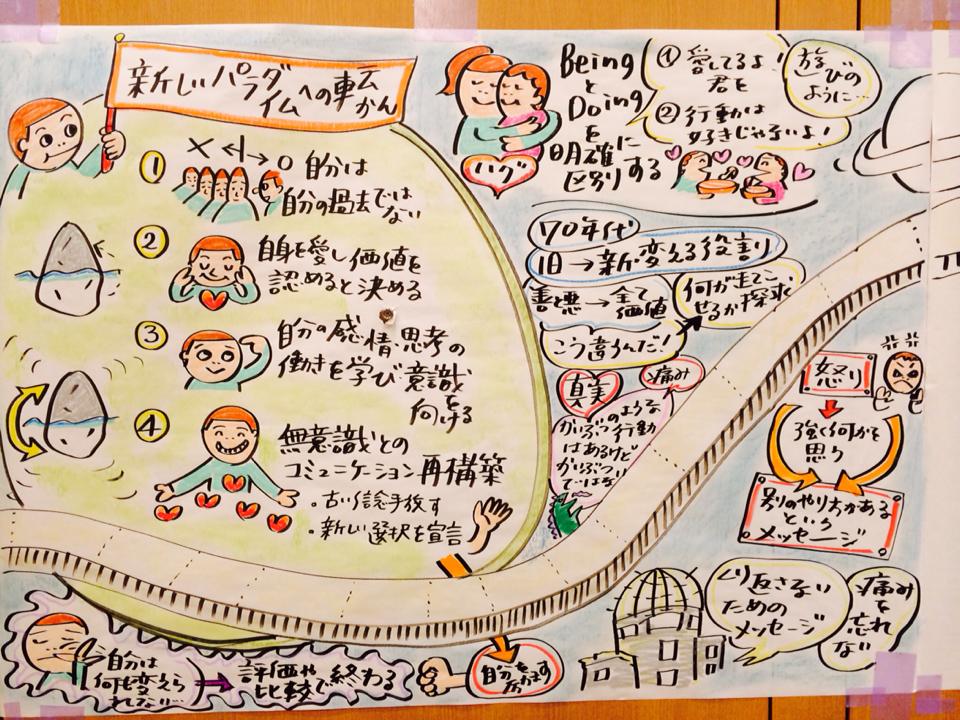 新しいパラダ
イムへの転
かん
①
× ←|→ ○ 自分は
自分の過去では
ない
②
自身を愛し価値を
認めると決める
③
自分の感情、思考の
働きを学び意識
を
向ける
④
無意識との
コミュニケーション再構築
・古い信念手放す
・新しい選択を宣言
自分は
何も変えら
れない…
→評価や
比較で終わる
Being
と
Doing
を
明確に
区別する
ハグ
① 愛してるよ!
君を
② 行動は
好きじゃないよ!
遊びの
ように…
70年代
旧→新.変える役割り
善と悪→全て
価値
何が
せるか探求
こう言うんだ!
真実
痛み
かいぶつのような
行動
はあるけど
かいぶつ
ではない
怒り
強く何かを
思う
別のやり方がある
という
メッセージ
くり返さない
ための
メッセージ
痛み
を
忘れ
ない
自分を